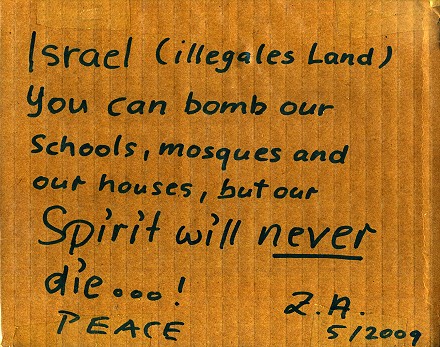 Israel (illegales Land)
You can bomb our
schools, mosques and
our houses, but our
Spirit will never
die...!
Z.A.
PEACE
5/2009